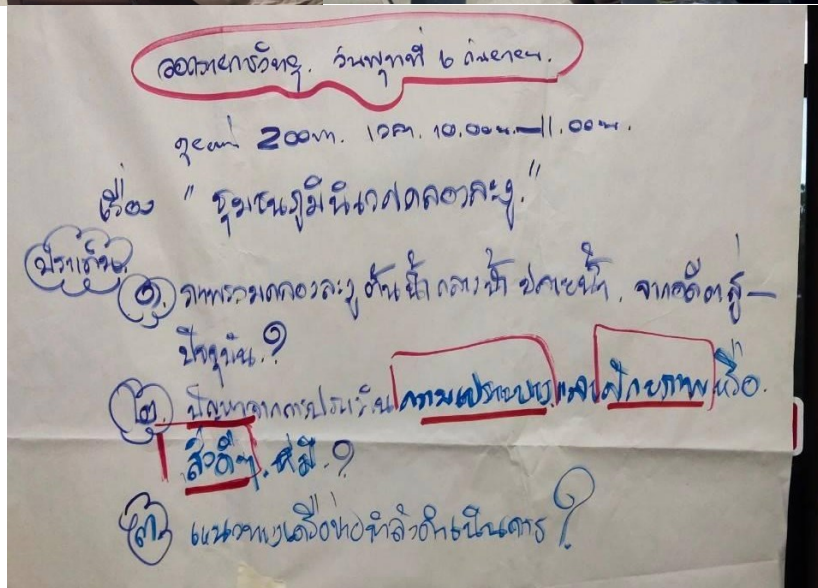 จัดรายการวิทยุ. วันพุธที่ ๖ กันยายน.
200 เวลา. 10.00น.—11.00น.
เรื่อง " ชุมชนภูมินิเวศคลองละงู."
ประเด็น.
๑. ภาพรวมคลองละงู ต้นน้ำ กลางน้ำ ปลายน้ำ. จากอดีตสู่—
ปัจจุบัน.?
๒. ปัญหาจากการประเมินความเปราะบางและศักยภาพหรือ.
สิ่งดีๆ. ที่มี.?
๓ แนวทางเครือข่ายกำลังดำเนินการ?